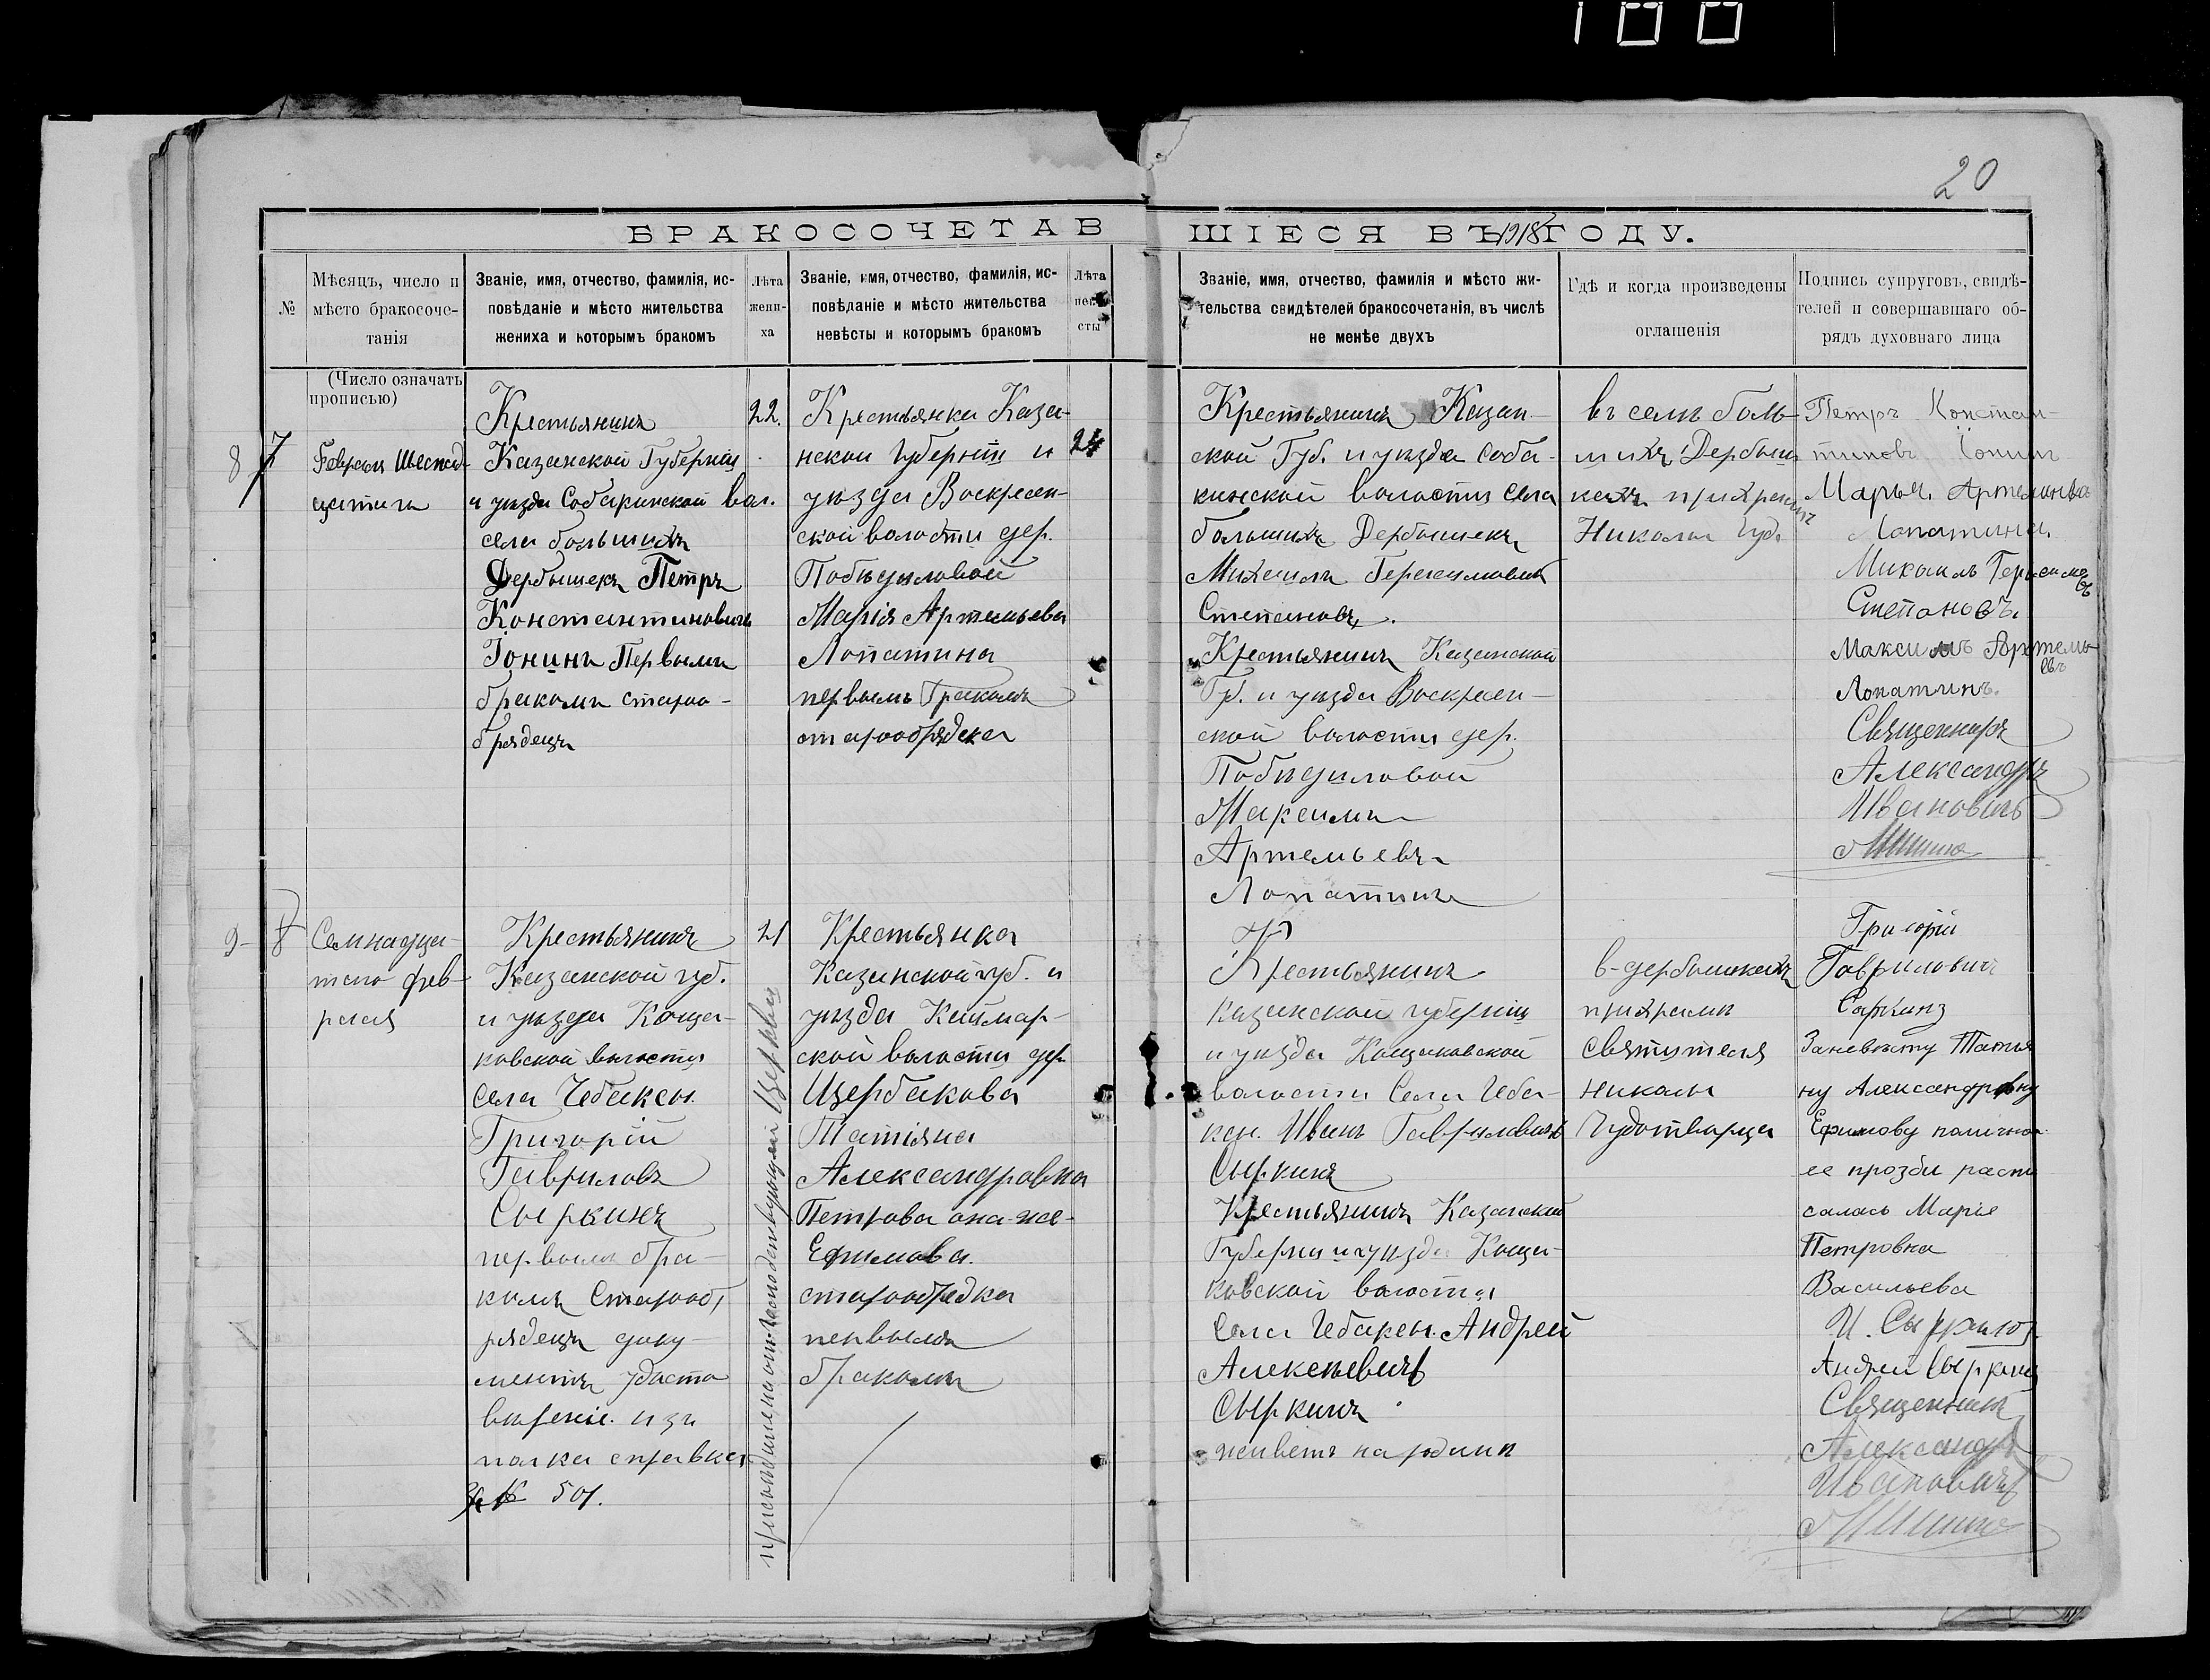 188
20
БРАКОСОЧЕТАВШІЕСЯ ВЪ 1918 ГОДУ.
№
Мѣсяцъ, число и
мѣсто бракосоче-
танія
Званіе, имя, отчество, фамилія, ис-
повѣданіе и мѣсто жительства
жениха и которымъ бракомъ
Лѣта
жени-
ха
Званіе, имя, отчество, фамилія, ис-
повѣданіе и мѣсто жительства
невѣсты и которымъ бракомъ
Лѣта
нев
сты
Званіе, имя, отчество, фамилія и мѣсто жи-
тельства свидѣтелей бракосочетанія, въ числѣ
не менѣе двухъ
Гдѣ и когда произведены
оглашенія
Подпись супруговъ, свидѣ-
телей и совершавшаго об-
рядъ духовнаго лица
(Число означать
прописью)
8 7
Февраля Шеснад-
цатига
Крестьянинъ
Казанской Губерніи
и уѣзда Собакинской вол.
села большихъ
Дербышекъ Петръ
Константиновичъ
Іонинъ Первымъ
бракомъ старо-
брядецъ
22.
Крестьянка Каза-
нской Губерніи и
уѣзда Воскресен-
ской волости дер.
Побѣдиловой
Марія Артемьева
Лопатина
первымъ бракомъ
старообрядка
24
Крестьянинъ Казан-
ской Губ. и уѣзда Соба-
кинской волости села
большихъ Дербышекъ
Михаилъ Герасимовичъ
Степановъ.
Крестьянинъ Казанской
Гр. и уѣзда Воскресен-
ской волости дер.
Побѣдиловой
Максимъ
Артемьевъ
Лопатинъ
въ селѣ боль-
шихъ Дербыш
кахъ при храмѣ
Николы Чуд.
Петръ Констан-
тиновъ Іонинъ
Марья Артемьива
Лопатина.
Михаилъ Герасимовъ
Степановъ.
Максимъ Артемь
евъ
Лопатинъ.
Священикъ
Александръ
Ивановичъ
9- 8
Семнадца-
таго фев-
раля
Крестьянинъ
Казанской губ.
и уѣзда Коща-
ковской волости
села Чебаксы.
Григорій
Гавриловъ
Сыркинъ
первымъ бра-
комъ Старооб,
рядецъ доку-
ментъ удосто
вѣреніе. изъ
полка справка
№ 501.
21
присоединена отъ Господствующей Церкви
Крестьянка
Казанской губ. и
уѣзда Каймар-
ской волости дер
Щербакова
Татіяна
Александровна
Петрова она-же-
Ефимова.
старообрядка
первымъ
бракомъ
Крестьянинъ
Казанской губерніи
и уѣзда Кощаковской
волости Села Чеба-
ксы. Иванъ Гавриловичъ
Сыркинъ
Крестьянинъ Казанской
Губерніи и уѣзда Коща-
ковской волости
Села Чебаксы. Андрей
Алексѣевичъ
Сыркинъ
живетъ на родинѣ
в-дербышкахъ
при храмѣ
святителя
николы
Чудотворца
Григорій
Гавриловичъ
Сыркинъ
За невѣсту Татья
ну Александровну
Ефимову поличной
ее прозби распи
салась Марія
Петровна
Васильева
И. Сыркинъ
Андрей Сыркинъ
Священникъ
Александръ
Ивановичъ